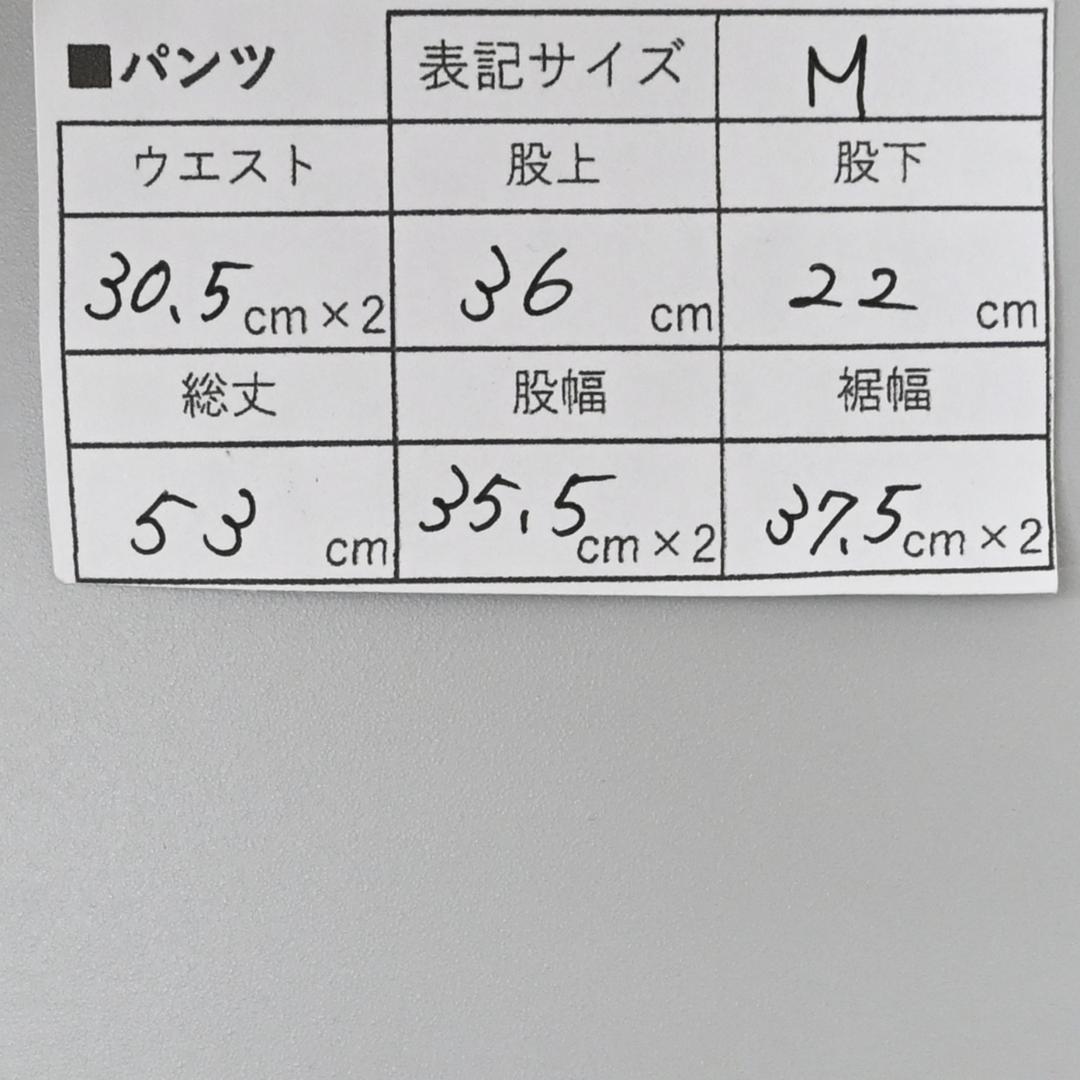 ■パンツ 表記サイズ M
ウエスト 股上 股下
30.5cm×2 36 cm 22 cm
総丈 股幅 裾幅
53 cm 35.5cm×2 37.5cm×2